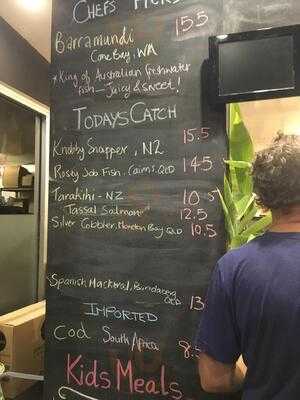 CHEFS PICKS
15.5
Barramundi
Cone Bay, WA
* King of Australian freshwater
fish - Juicy & sweet!
TODAYS CATCH
Knobby Snapper, NZ 15.5
Rosey Job Fish, Cairns, QLD 14.5
Tarakihi - NZ 10.5
Tassal Salmon 12.5
Silver Cobbler, Moreton Bay QLD 10.5
Spanish Mackeral, Bundaberg
QLD 13
IMPORTED
Cod South Africa 8.5
Kids Meals